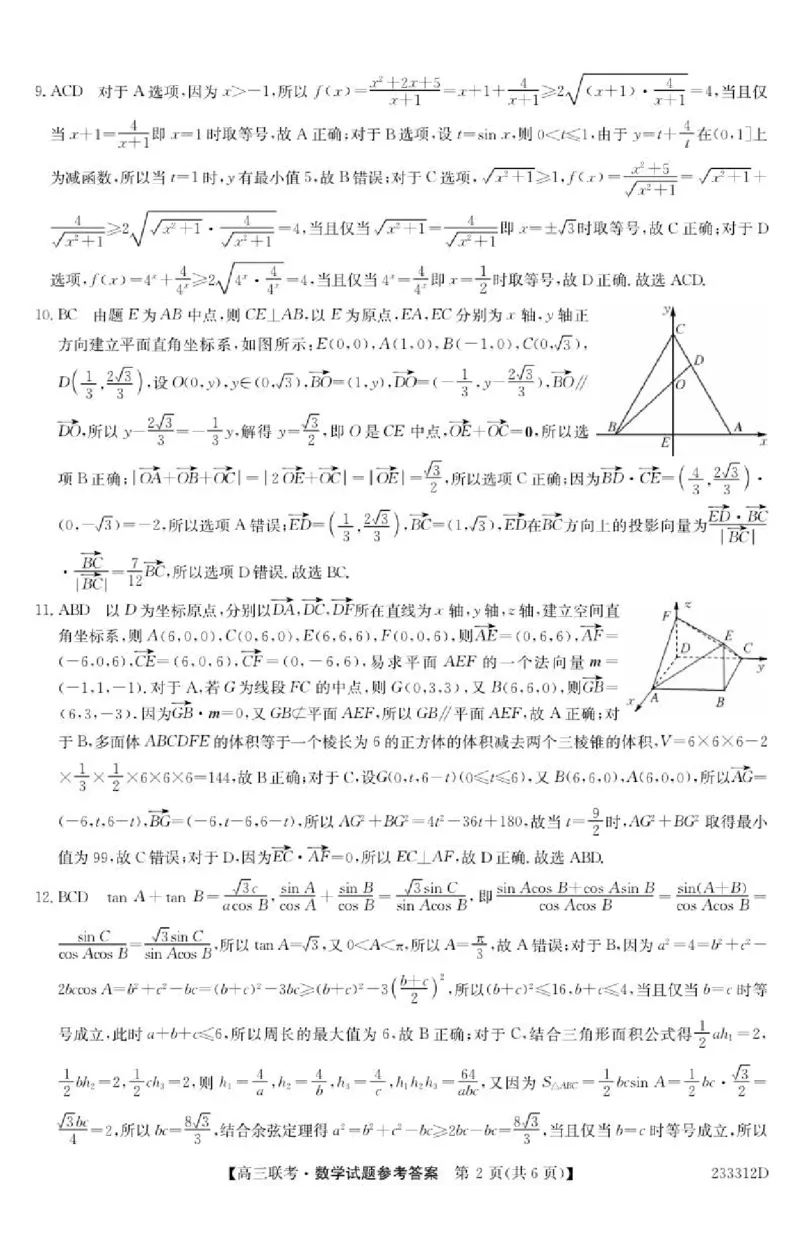 9. ACD 对于 A 选项,因为 x>-1,所以 f(x)=\frac{x²+2x+5}{x+1}=x+1+\frac{4}{x+1}≥2\sqrt{(x+1)·\frac{4}{x+1}}=4,当且仅
当 x+1=\frac{4}{x+1}即 x=1 时取等号,故 A 正确;对于 B 选项,设 t=sin x,则 0<t≤1,由于 y=t+\frac{4}{t}在(0,1]上
为减函数,所以当 t=1 时,y 有最小值 5,故 B 错误;对于 C 选项,\sqrt{x²+1}≥1,f(x)=\frac{x²+5}{\sqrt{x²+1}}=\sqrt{x²+1}+
\frac{4}{\sqrt{x²+1}}≥2\sqrt{\sqrt{x²+1}·\frac{4}{\sqrt{x²+1}}}=4,当且仅当\sqrt{x²+1}=\frac{4}{\sqrt{x²+1}}即 x=±\sqrt{3}时取等号,故 C 正确;对于 D
选项,f(x)=4^x+\frac{4}{4^x}≥2\sqrt{4^x·\frac{4}{4^x}}=4,当且仅当 4^x=\frac{4}{4^x}即 x=\frac{1}{2}时取等号,故 D 正确. 故选 ACD.
10. BC 由题 E 为 AB 中点,则 CE⊥AB,以 E 为原点,EA,EC 分别为 x 轴,y 轴正
方向建立平面直角坐标系,如图所示:E(0,0),A(1,0),B(-1,0),C(0,\sqrt{3}),
D(\frac{1}{3},\frac{2\sqrt{3}}{3}),设 O(0,y),y∈(0,\sqrt{3}),\overrightarrow{BO}=(1,y),\overrightarrow{DO}=(-\frac{1}{3},y-\frac{2\sqrt{3}}{3}),\overrightarrow{BO}∥
\overrightarrow{DO},所以 y-\frac{2\sqrt{3}}{3}=-\frac{1}{3}y,解得 y=\frac{\sqrt{3}}{2},即 O 是 CE 中点,\overrightarrow{OE}+\overrightarrow{OC}=0,所以选
项 B 正确;|\overrightarrow{OA}+\overrightarrow{OB}+\overrightarrow{OC}|=|2\overrightarrow{OE}+\overrightarrow{OC}|=|\overrightarrow{OE}|=\frac{\sqrt{3}}{2},所以选项 C 正确;因为\overrightarrow{BD}·\overrightarrow{CE}=(\frac{4}{3},\frac{2\sqrt{3}}{3})·
(0,-\sqrt{3})=-2,所以选项 A 错误;\overrightarrow{ED}=(\frac{1}{3},\frac{2\sqrt{3}}{3}),\overrightarrow{BC}=(1,\sqrt{3}),\overrightarrow{ED}在\overrightarrow{BC}方向上的投影向量为\frac{\overrightarrow{ED}·\overrightarrow{BC}}{|\overrightarrow{BC}|}
·\frac{\overrightarrow{BC}}{|\overrightarrow{BC}|}=\frac{7}{12}\overrightarrow{BC},所以选项 D 错误. 故选 BC.
y
C
D
O
B
A
E
x
11. ABD 以 D 为坐标原点,分别以\overrightarrow{DA},\overrightarrow{DC},\overrightarrow{DF}所在直线为 x 轴,y 轴,z 轴,建立空间直
角坐标系,则 A(6,0,0),C(0,6,0),E(6,6,6),F(0,0,6),则\overrightarrow{AE}=(0,6,6),\overrightarrow{AF}=
(-6,0,6),\overrightarrow{CE}=(6,0,6),\overrightarrow{CF}=(0,-6,6),易求平面 AEF 的一个法向量 m=
(-1,1,-1). 对于 A,若 G 为线段 FC 的中点,则 G(0,3,3),又 B(6,6,0),则\overrightarrow{GB}=
(6,3,-3). 因为\overrightarrow{GB}·m=0,又 GB⊄平面 AEF,所以 GB∥平面 AEF,故 A 正确;对
于 B,多面体 ABCDFE 的体积等于一个棱长为 6 的正方体的体积减去两个三棱锥的体积,V=6×6×6-2
×\frac{1}{3}×\frac{1}{2}×6×6×6=144,故 B 正确;对于 C,设G(0,t,6-t)(0≤t≤6),又 B(6,6,0),A(6,0,0),所以\overrightarrow{AG}=
(-6,t,6-t),\overrightarrow{BG}=(-6,t-6,6-t),所以 AG²+BG²=4t²-36t+180,故当 t=\frac{9}{2}时,AG²+BG² 取得最小
值为 99,故 C 错误;对于 D,因为\overrightarrow{EC}·\overrightarrow{AF}=0,所以 EC⊥AF,故 D 正确. 故选 ABD.
z
F
E
D
C
y
x
A
B
12. BCD tan A+tan B=\frac{\sqrt{3}c}{acos B},\frac{sin A}{cos A}+\frac{sin B}{cos B}=\frac{\sqrt{3}sin C}{sin Acos B},即\frac{sin Acos B+cos Asin B}{cos Acos B}=\frac{sin(A+B)}{cos Acos B}=
\frac{sin C}{cos Acos B}=\frac{\sqrt{3}sin C}{sin Acos B},所以 tan A=\sqrt{3},又 0<A<π,所以 A=\frac{π}{3},故 A 错误;对于 B,因为 a²=4=b²+c²-
2bccos A=b²+c²-bc=(b+c)²-3bc≥(b+c)²-3(\frac{b+c}{2})²,所以(b+c)²≤16,b+c≤4,当且仅当 b=c 时等
号成立,此时 a+b+c≤6,所以周长的最大值为 6,故 B 正确;对于 C,结合三角形面积公式得\frac{1}{2}ah₁=2,
\frac{1}{2}bh₂=2,\frac{1}{2}ch₃=2,则 h₁=\frac{4}{a},h₂=\frac{4}{b},h₃=\frac{4}{c},h₁h₂h₃=\frac{64}{abc},又因为 S△ABC=\frac{1}{2}bcsin A=\frac{1}{2}bc·\frac{\sqrt{3}}{2}=
\frac{\sqrt{3}bc}{4}=2,所以 bc=\frac{8\sqrt{3}}{3},结合余弦定理得 a²=b²+c²-bc≥2bc-bc=\frac{8\sqrt{3}}{3},当且仅当 b=c 时等号成立,所以
【高三联考·数学试题参考答案 第 2 页(共 6 页)】
233312D